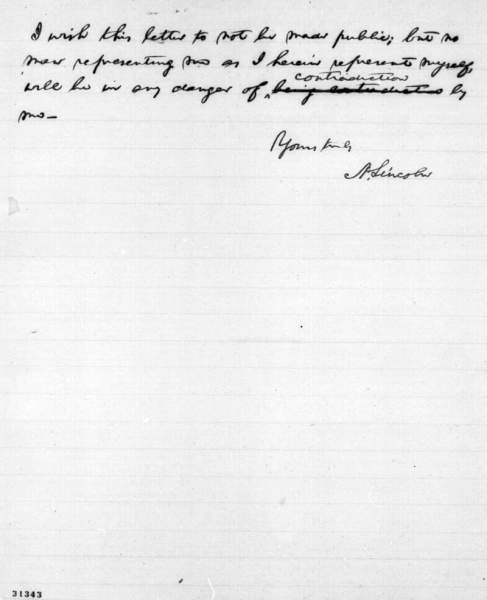 I wish this letter to not be made public; but no
man representing me as I herein represent myself,
will be in any danger of contradiction by
me—
Yours truly
A. Lincoln
31343